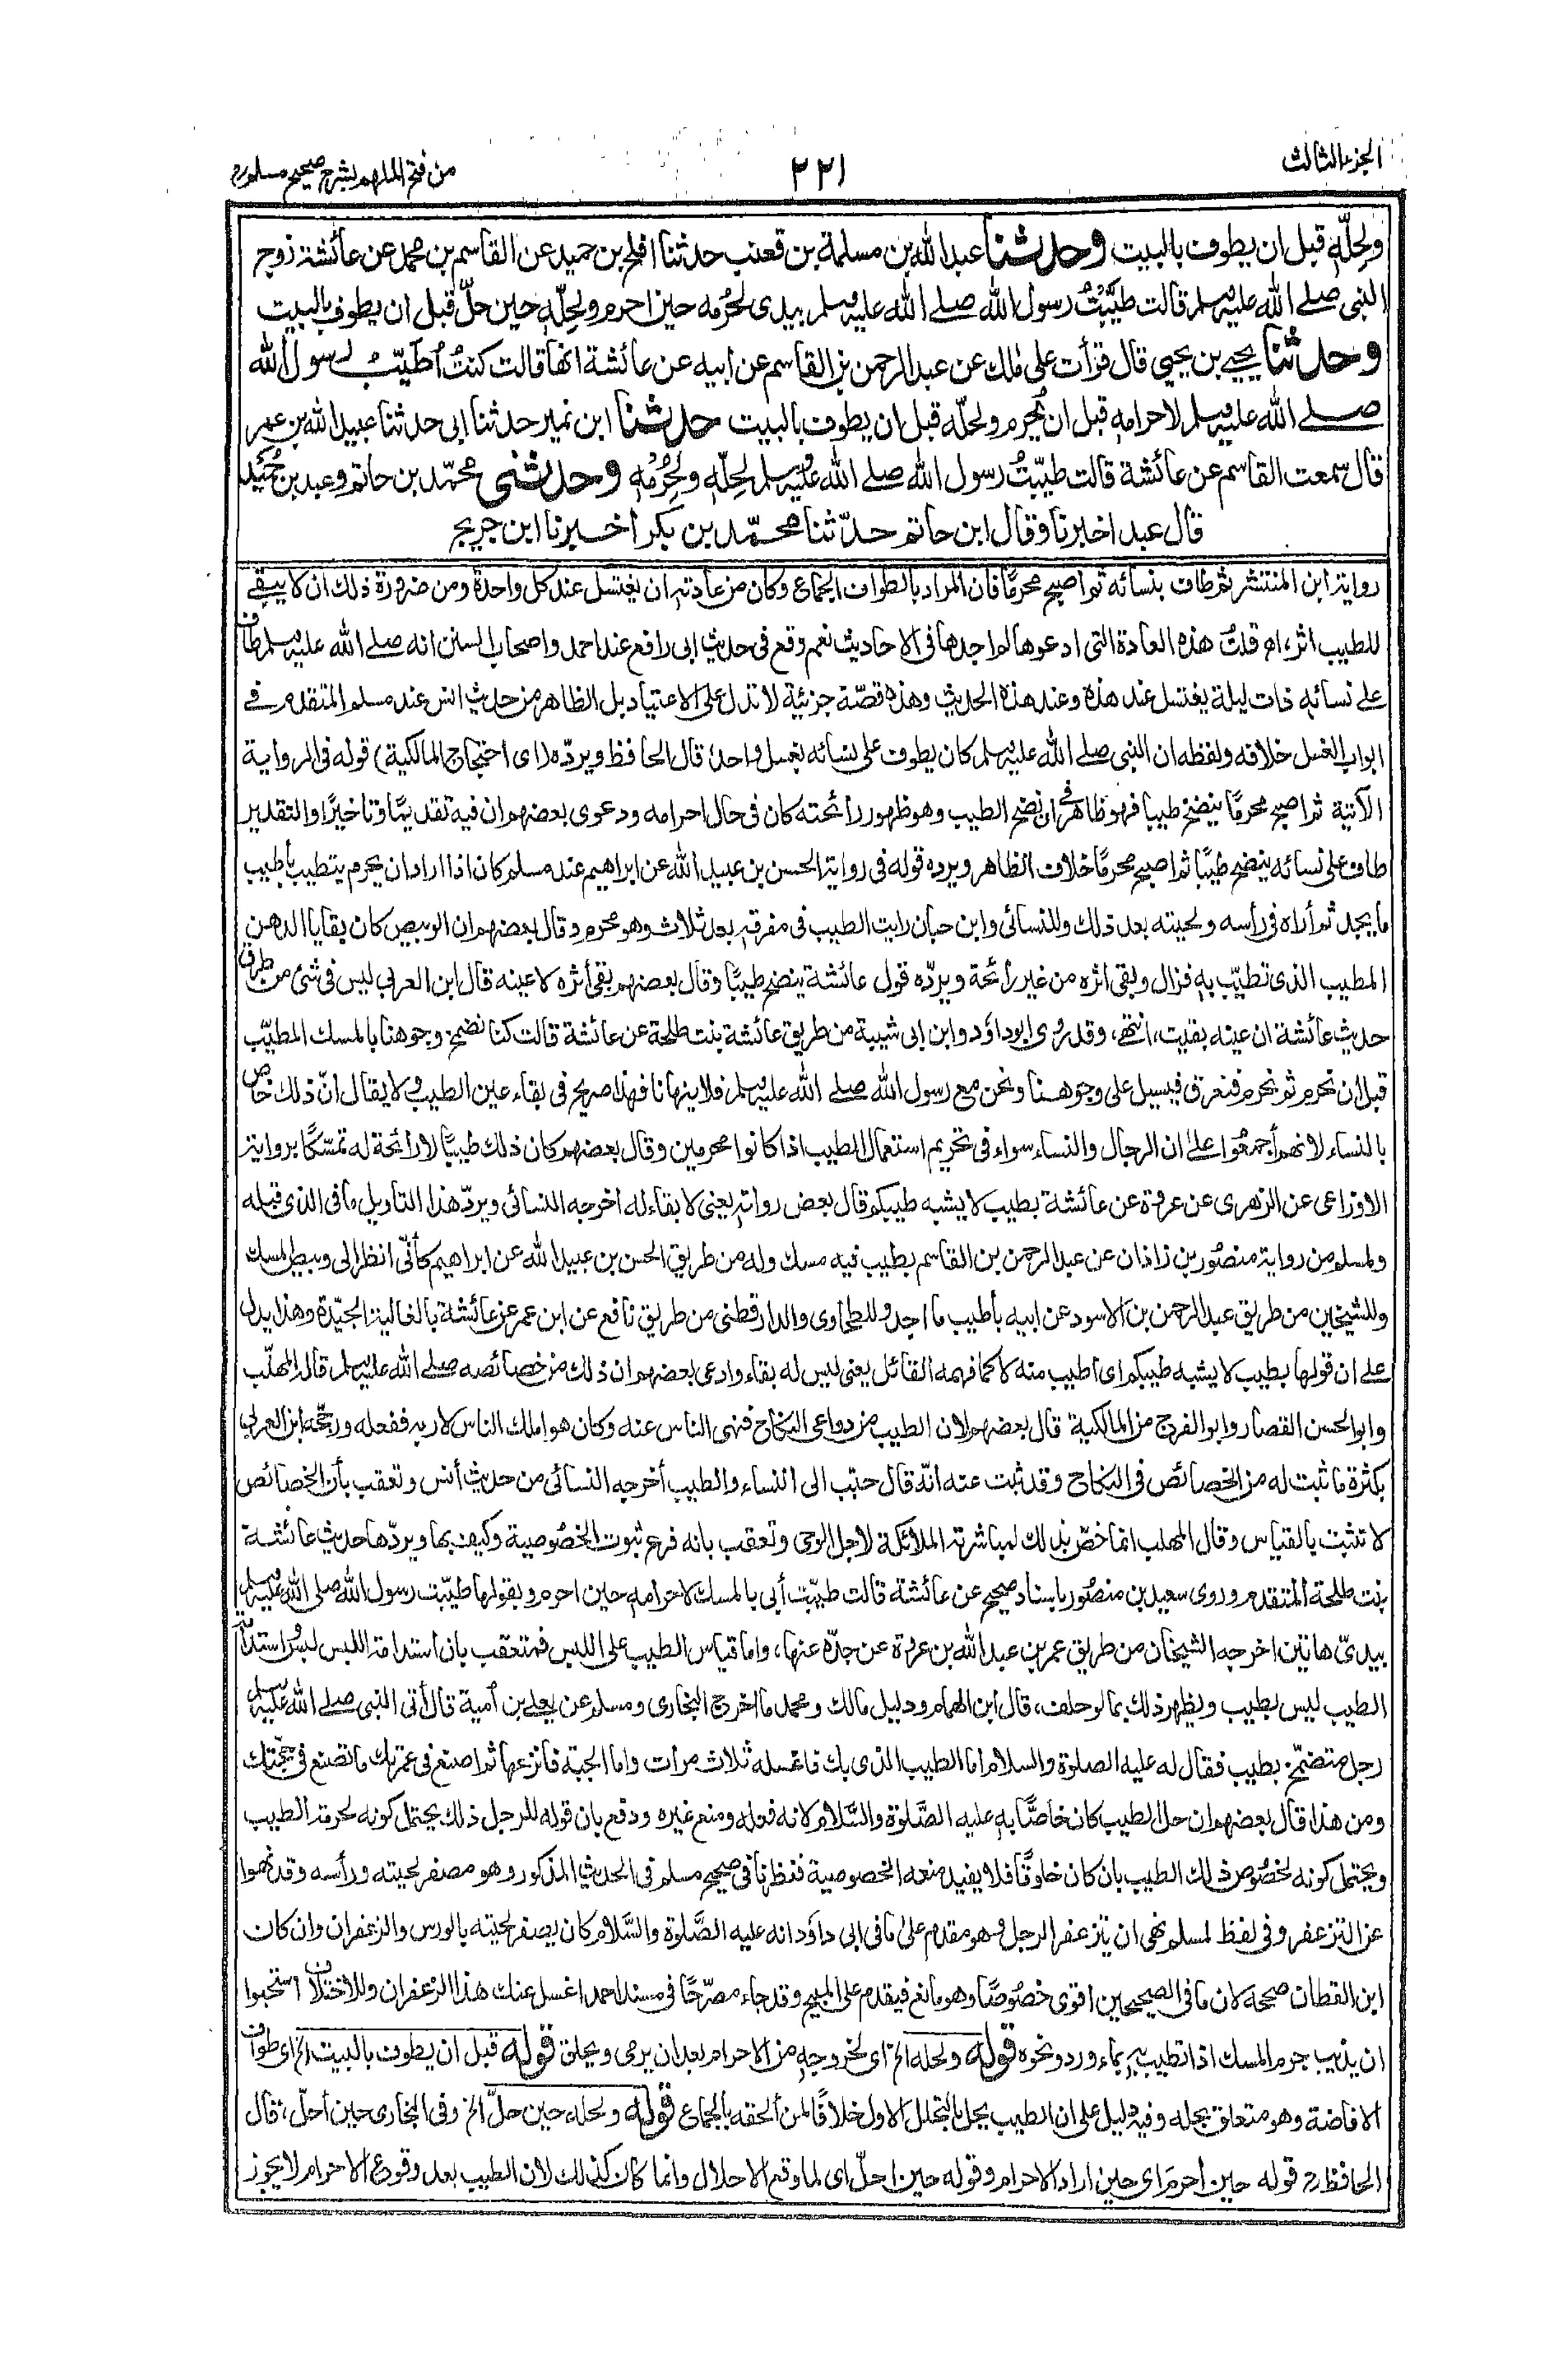 الجزء الثالث
٢٢١
من فتح الملهم بشرح صحيح مسلم
ولحله قبل ان يطوف بالبيت وحدثنا عبد الله بن مسلمة بن قعنب حدثنا افلح بن حميد عن القاسم بن محمد عن عائشة زوج
النبي صلى الله عليه وسلم قالت طيّبتُ رسول الله صلى الله عليه وسلم بيدى لحُرمه حين احرم ولحِلّه حين حلّ قبل ان يطوف بالبيت
وحدثنا يحيى بن يحيى قال قرأت على مٰلك عن عبد الرحمن بن القاسم عن ابيه عن عائشة انها قالت كنتُ اُطيّبُ رسول الله
صلى الله عليه وسلم لاحرامه قبل ان يُحرم ولحلّه قبل ان يطوف بالبيت حدثنا ابن نمير حدثنا ابى حدثنا عبيد الله بن عمر
قال سمعت القاسم عن عائشة قالت طيّبتُ رسول الله صلى الله عليه وسلم لحِلّه ولحُرْمه وحدثنى محمّد بن حاتم وعبد بن حُمَيْد
قال عبد اخبرنا وقال ابن حاتم حدّثنا محمّد بن بكر أخبرنا ابن جريج
رواية ابن المنتشر ثم طاف بنسائه ثم اصبح محرمًا فان المراد بالطواف الجماع وكان من عادته ان يغتسل عند كل واحدة ومن ضرورة ذلك ان لا يبقى
للطيب اثر، اھ قلتُ هذه العادة التى ادعوها لم اجدها فى الاحاديث نعم وقع فى حديث ابى رافع عند احمد واصحاب السنن انه صلى الله عليه وسلم طاف
على نسائه ذات ليلة يغتسل عند هذه وعند هذه الحديث وهذه قصّة جزئية لا تدل على الاعتياد بل الظاهر من حديث انس عند مسلم المتقدم فى
ابواب الغسل خلافه ولفظه ان النبى صلى الله عليه وسلم كان يطوف على نسائه بغسل واحد، قال الحافظ ويردّه (اى احتجاج المالكية) قوله فى الرواية
الآتية ثم اصبح محرمًا ينضخ طيبا فهو ظاهر فى ان نضح الطيب وهو ظهور رائحته كان فى حال احرامه ودعوى بعضهم ان فيه تقديمًا وتاخيرًا والتقدير
طاف على نسائه ينضخ طيبًا ثم اصبح محرمًا خلاف الظاهر ويرده قوله فى رواية الحسن بن عبيد الله عن ابراهيم عند مسلم كان اذا اراد ان يحرم يتطيب بأطيب
ما يجد ثم أراه فى رأسه ولحيته بعد ذلك وللنسائى وابن حبان رايت الطيب فى مفرقه بعد ثلاث وهو محرم وقال بعضهم ان الوبيص كان بقايا الدهن
المطيب الذى تطيّب به فزال وبقى اثره من غير رائحة ويردّه قول عائشة ينضح طيبًا وقال بعضهم بقى أثره لا عينه قال ابن العربى ليس فى شئ من طرق
حديث عائشة ان عينه بقيت، انتهى، وقد روى ابوداؤد وابن ابى شيبة من طريق عائشة بنت طلحة عن عائشة قالت كنا نضمخ وجوهنا بالمسك المطيّب
قبل ان نحرم ثم نحرم فنعرق فيسيل على وجوهنا ونحن مع رسول الله صلى الله عليه وسلم فلا ينهانا فهذا صريح فى بقاء عين الطيب ولا يقال انّ ذلك خاص
بالنساء لانهم أجمعُوا علىٰ ان الرجال والنساء سواء فى تحريم استعمال الطيب اذا كانوا محرمين وقال بعضهم كان ذلك طيبًا لا رائحة له تمسّكًا برواية
الاوزاعى عن الزهرى عن عروة عن عائشة بطيب لا يشبه طيبكم قال بعض رواته يعنى لا بقاء له اخرجه النسائى ويردّ هذا التاويل ما فى الذى قبله
ولمسلم من رواية منصُور بن زاذان عن عبد الرحمن بن القاسم بطيب فيه مسك وله من طريق الحسن بن عبيد الله عن ابراهيم كأنّى انظر الى وبيص المسك
وللشيخين من طريق عبد الرحمن بن الاسود عن ابيه بأطيب ما اجد وللطحاوى والدارقطنى من طريق نافع عن ابن عمر عن عائشة بالغالية الجيّدة وهذا يدل
على ان قولها بطيب لا يشبه طيبكم اى اطيب منه لا كما فهمه القائل يعنى ليس له بقاء وادعى بعضهم ان ذلك من خصائصه صلى الله عليه وسلم قال المهلّب
وابو الحسن القصار وابو الفرج من المالكية قال بعضهم لان الطيب من دواعى النكاح فنهى الناس عنه وكان هو املك الناس لاربه ففعله ورجّحه ابن العربى
بكثرة ما ثبت له من الخصائص فى النكاح وقد ثبت عنه انّه قال حبّب الى النساء والطيب أخرجه النسائى من حديث أنس وتعقب بأن الخصائص
لا تثبت بالقياس وقال المهلب انما خصّ بذلك لمباشرته الملائكة لاجل الوحى وتعقب بانه فرع ثبوت الخصُوصية وكيف بها ويردّها حديث عائشة
بنت طلحة المتقدم وروى سعيد بن منصُور باسناد صحيح عن عائشة قالت طيبّت أبى بالمسك لاحرامه حين احرم وبقولها طيّبت رسول الله صلى الله عليه وسلم
بيدىّ هاتين اخرجه الشيخان من طريق عمر بن عبد الله بن عروة عن جدّه عنها، واما قياس الطيب على اللبس فمتعقب بان استدامة اللبس لبس واستدامة
الطيب ليس بطيب ويظهر ذلك بما لو حلف، قال ابن الهمام ودليل مالك ومحمد ما اخرج البخارى ومسلم عن يعلى بن أمية قال أتى النبى صلى الله عليه وسلم
رجل متضمّخ بطيب فقال له عليه الصلوة والسلام اما الطيب الذى بك فاغسله ثلاث مرات واما الجبة فانزعها ثم اصنع فى عمرتك ما تصنع فى حجّتك
ومن هذا قال بعضهم ان حل الطيب كان خاصًّا به عليه الصَّلوة والسَّلام لانه فعله ومنع غيره ودفع بان قوله للرجل ذلك يحتمل كونه لحرمة الطيب
ويحتمل كونه لخصُوص ذلك الطيب بان كان خلوقًا فلا يفيد منعه الخصوصية فنظرنا فى صحيح مسلم فى الحديث المذكور وهو مصفر لحيته ورأسه وقد نهوا
عن التزعفر وفى لفظ لمسلم نهى ان يتزعفر الرجل وهو مقدم علىٰ ما فى ابى داؤد انه عليه الصَّلوة والسَّلام كان يصفر لحيته بالورس والزعفران وان كان
ابن القطان صححه لان ما فى الصحيحين اقوى خصُوصًا وهو مانع فيقدم على المبيح وقد جاء مصرّحًا فى مسند احمد اغسل عنك هذا الزعفران وللاختلاف استحبوا
ان يذيب جرم المسك اذا تطيب به بماء ورد ونحوه قوله ولحله الخ اى لخروجه من الاحرام بعد ان يرمى ويحلق قوله قبل ان يطوف بالبيت الخ اى طواف
الافاضة وهو متعلق بحله وفيه دليل على ان الطيب يحل بالتحلل الاول خلافًا لمن ألحقه بالجماع قوله ولحله حين حلّ الخ وفى البخارى حين أحلّ، قال
الحافظ رح قوله حين أحرم اى حين اراد الاحرام وقوله حين احلّ اى لما وقع الاحلال وانما كان كذلك لان الطيب بعد وقوع الاحرام لا يجوز